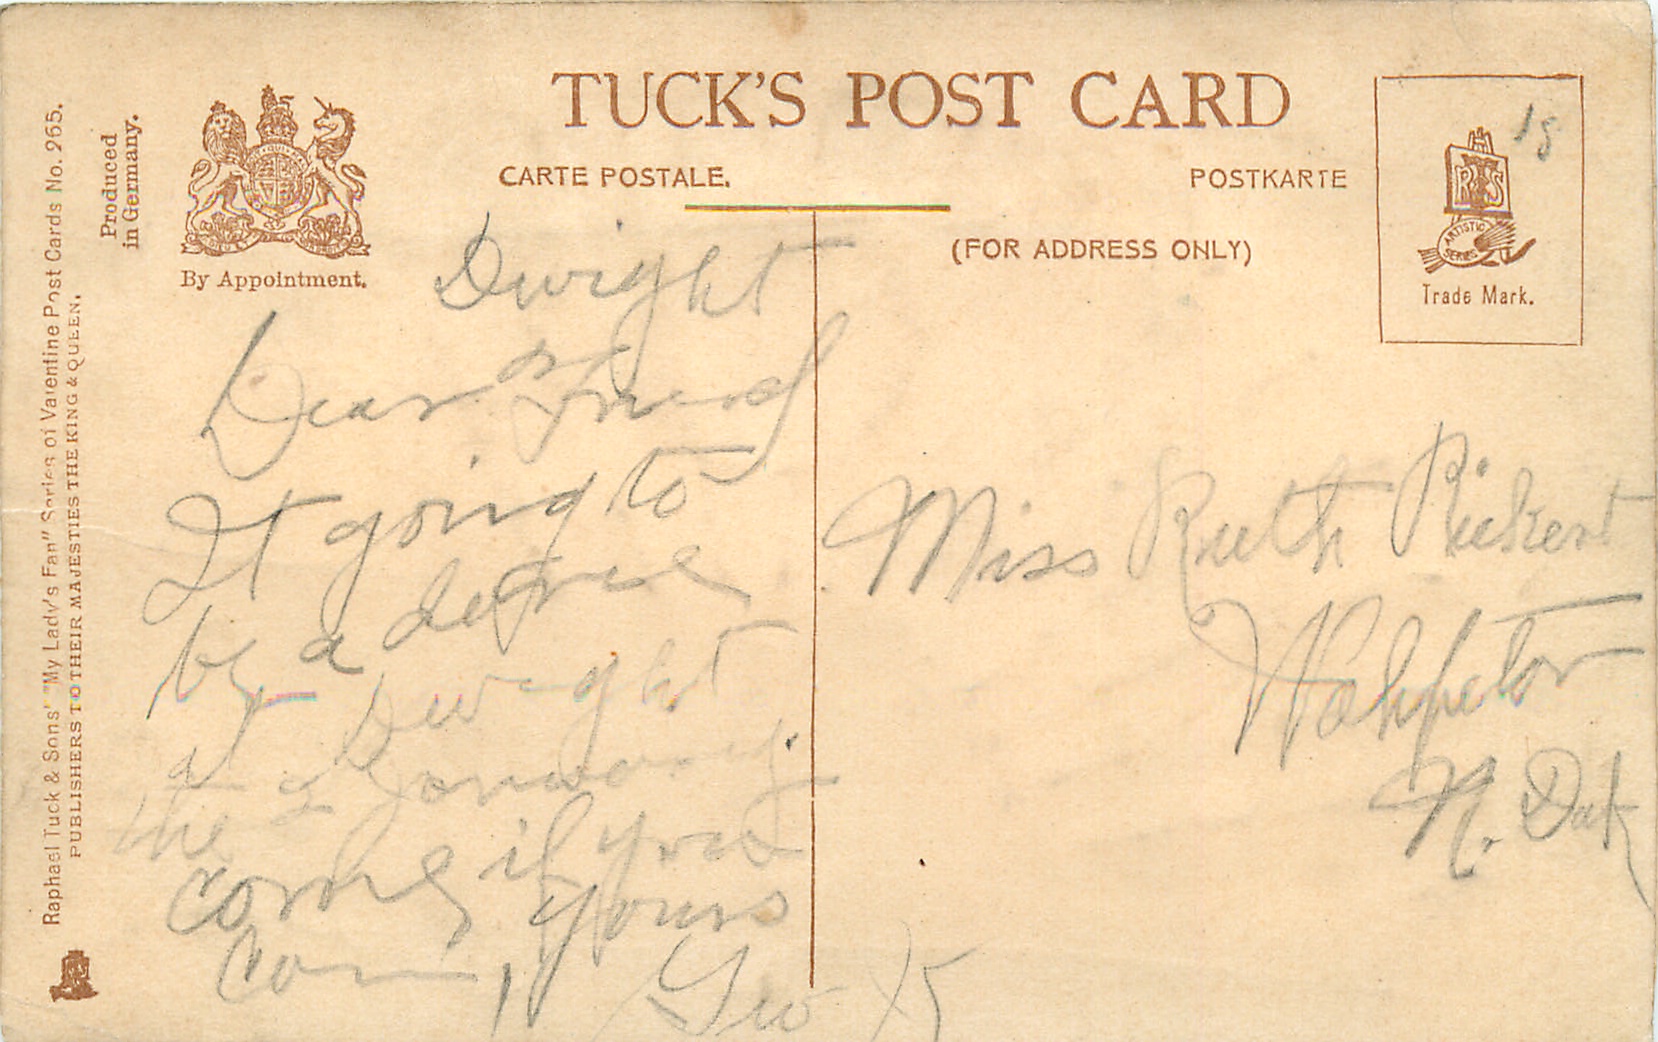 TUCK'S POST CARD
CARTE POSTALE.
POSTKARTE
(FOR ADDRESS ONLY)
By Appointment.
Produced
in Germany.
Raphael Tuck & Sons' "My Lady's Fan" Series of Valentine Post Cards No. 265.
PUBLISHERS TO THEIR MAJESTIES THE KING & QUEEN.
RTS
ARTISTIC
SERIES
Trade Mark.
Dwight
Dear Friend
It going to
by a
at Dwight
the
come if you
Com, Yours
Geo
Miss Ruth Pickert
Wahpeton
N. Dak